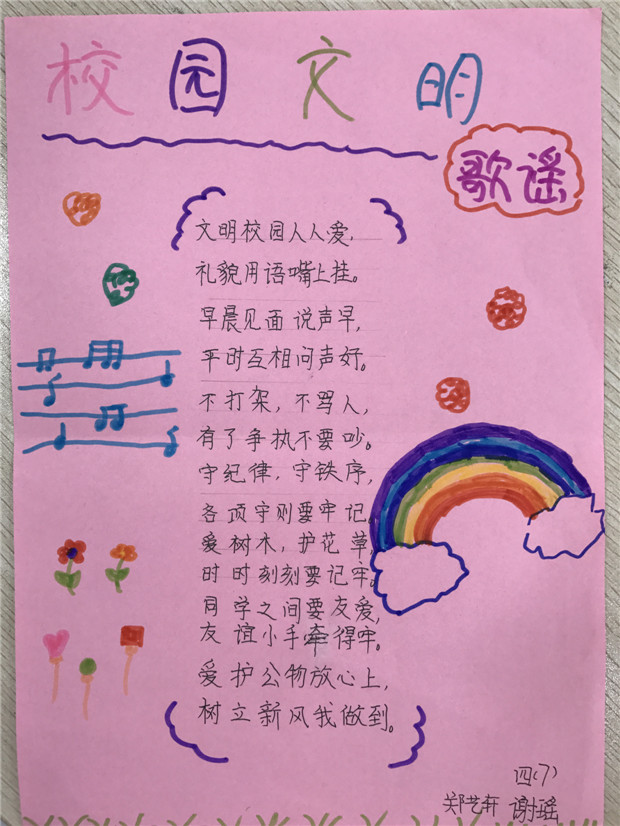 校园文明
歌谣
文明校园人人爱，
礼貌用语嘴上挂。
早晨见面说声早，
平时互相问声好。
不打架，不骂人，
有了争执不要吵。
守纪律，守铁序，
各项守则要牢记
爱树木，护花草，
时时刻刻要记牢。
同学之间要友爱，
友谊小手牵得牢。
爱护公物放心上，
树立新风我做到。
四(7)
郑艺轩 谢瑶